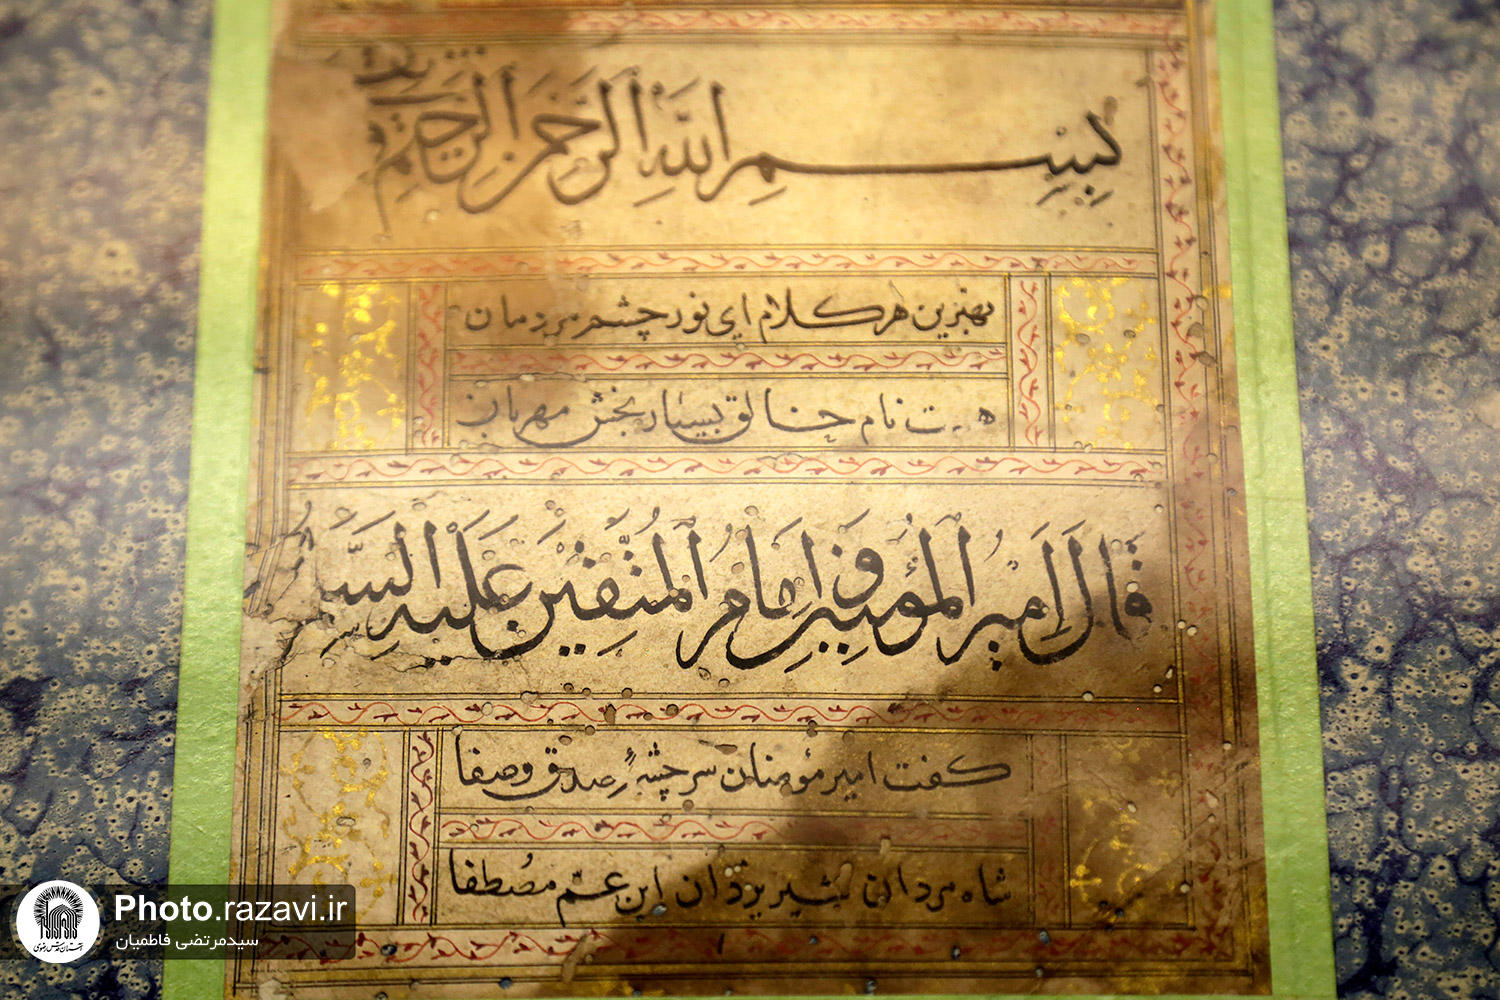 بِسْمِ اللَّهِ الرَّحْمَنِ الرَّحِيمِ
بهترین هر کلام ای نور چشم مردمان
هست نام خالق بسیار بخش مهربان
قَالَ اَمِيرُ الْمُؤْمِنِينَ وَ اِمَامُ الْمُتَّقِينَ عَلَيْهِ السَّلَام
کفت امیر مؤمنان سرچشمهٔ صدق وصفا
شاه مردان شیر یزدان ابن عمّ مصطفا
Photo.razavi.ir
سیدمرتضی فاطمیان
آستان قدس رضوی